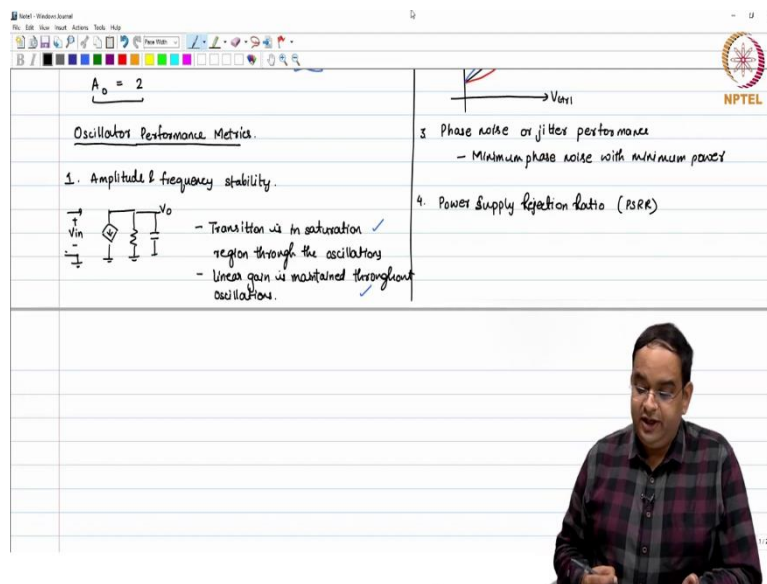 Note1 - Windows Journal
File Edit View Insert Actions Tools Help
Page Width
B I
NPTEL
A₀ = 2
Oscillator Performance Metrics.
1. Amplitude & frequency stability.
Vin
+
-
V₀
- Transition is in saturation ✓
region through the oscillations
- Linear gain is maintained throughout
oscillations. ✓
3 Phase noise or jitter performance
- Minimum phase noise with minimum power
4. Power Supply Rejection Ratio (PSRR)